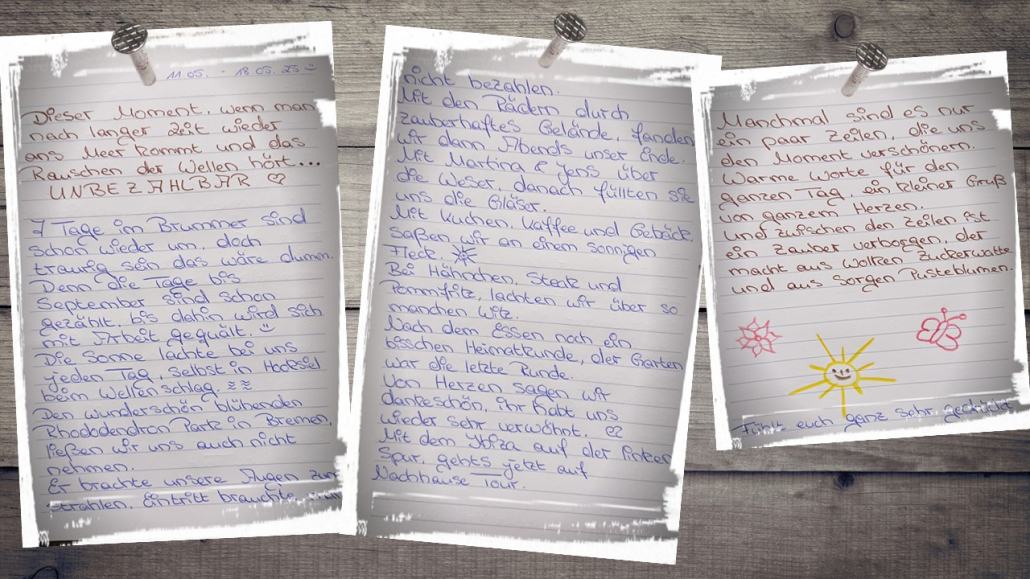 11.05. - 18.05.25 ☺
Dieser Moment, wenn man
nach langer Zeit wieder
ans Meer kommt und das
Rauschen der Wellen hört...
UNBEZAHLBAR ♡
7 Tage im Brummer sind
schon wieder um, doch
traurig sein das wäre dumm.
Denn die Tage bis
September sind schon
gezählt, bis dahin wird sich
mit Arbeit gequält. ☺
Die Sonne lachte bei uns
jeden Tag, selbst in Hooksiel
beim Wellenschlag. ≈ ≈
Den wunderschön blühenden
Rhododendron Park in Bremen,
ließen wir uns auch nicht
nehmen.
Er brachte unsere Augen zum
strahlen, Eintritt brauchte
nicht bezahlen.
Mit den Rädern durch
zauberhaftes Gelände, fanden
wir dann Abends unser Ende.
Mit Martina & Jens über
die Weser, danach füllten sie
uns die Gläser.
Mit Kuchen, Kaffee und Gebäck,
saßen wir an einem sonnigen
Fleck.
Bei Hähnchen, Steak und
Pommfritz, lachten wir über so
manchen Witz.
Nach dem Essen noch ein
bisschen Heimatkunde, der Garten
war die letzte Runde.
Von Herzen sagen wir
dankeschön, ihr habt uns
wieder sehr verwöhnt. ♡
Mit dem Ybiza auf der linken
Spur, gehts jetzt auf
Nachhause Tour.
Manchmal sind es nur
ein paar Zeilen, die uns
den Moment verschönern.
Warme Worte für den
ganzen Tag, ein kleiner Gruß
von ganzem Herzen.
und zwischen den Zeilen ist
ein Zauber verborgen, der
macht aus Wolken Zuckerwatte
und aus Sorgen Pusteblumen.
Fühlt euch ganz sehr gedrückt